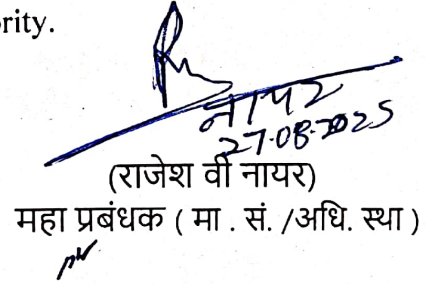 ority.
नायर
27-08-2025
(राजेश वी नायर)
महा प्रबंधक ( मा . सं. /अधि. स्था )